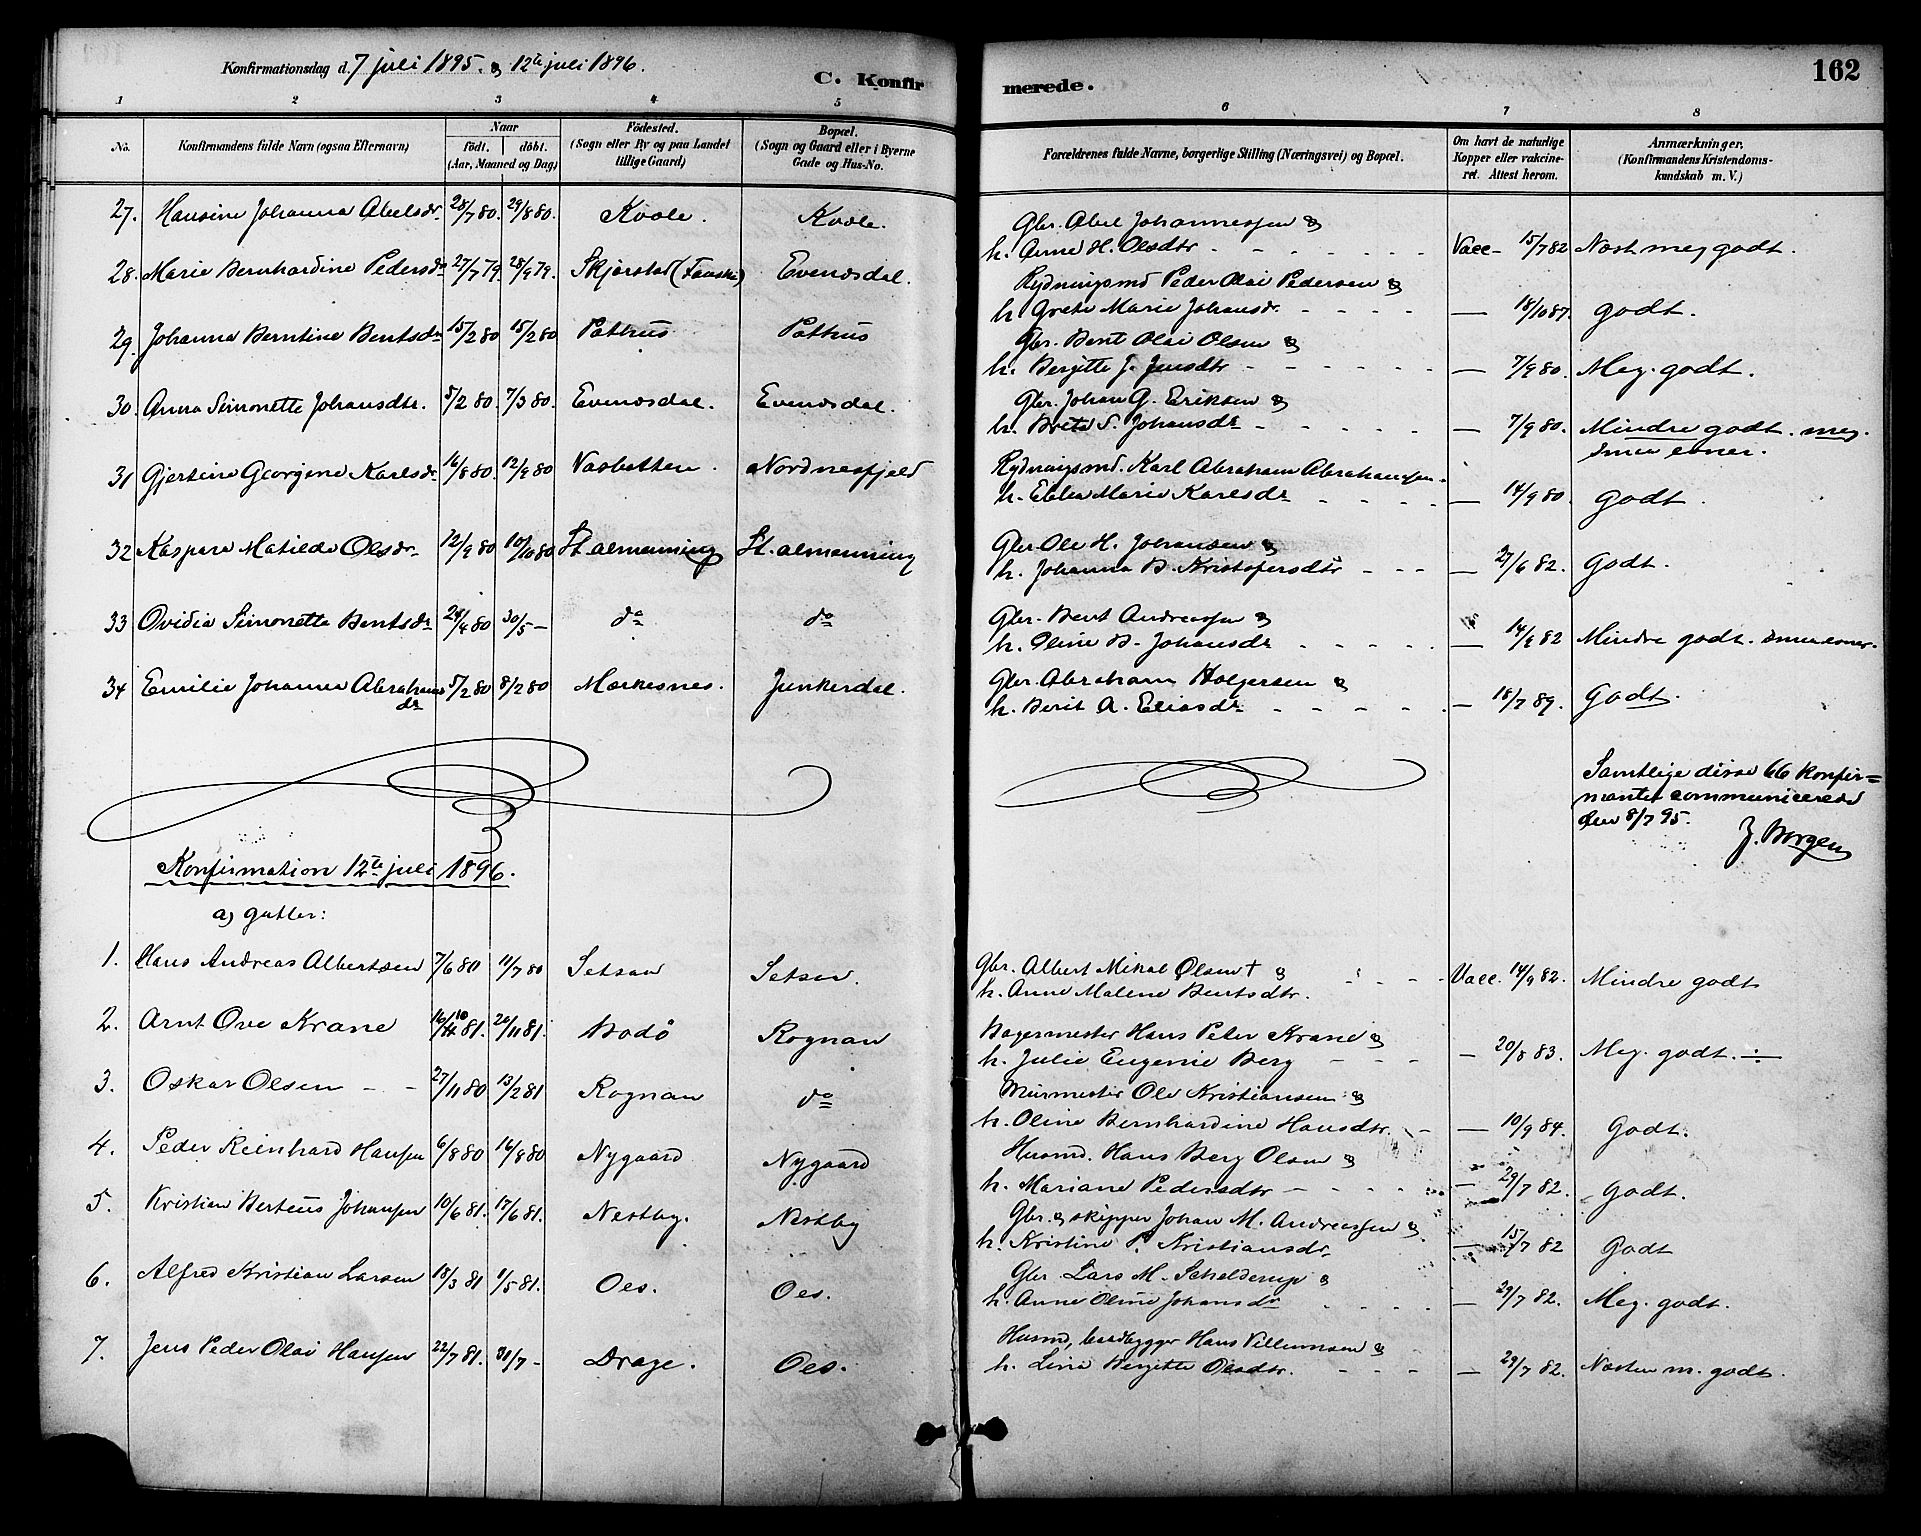 Konfirmationsdag d. 7 juli 1895. & 12te juli 1896.
C. Konfirmerede.
162
1 2 3 4 5 6 7 8
No. Konfirmandens fulde Navn (ogsaa Efternavn) Naar födt. döbt. (Aar, Maaned og Dag) Födested. (Sogn eller By og paa Landet tillige Gaard) Bopæl. (Sogn og Gaard eller i Byerne Gade og Hus-No. Forældrenes fulde Navne, borgerlige Stilling (Næringsvei) og Bopæl. Om havt de naturlige Kopper eller vaccineret. Attest herom. Anmærkninger. (Konfirmandens Kristendomskundskab m. V.)
27. Hansine Johanna Abelsdr. 28/7 80. 29/8 80. Kvæle. Kvæle. Gbr. Abel Johannessen &
h. Anne H. Olsdtr - - - - - Vacc - 15/7 82 Næst meg godt.
28. Marie Bernhardine Pedersdr 27/7 79. 28/9 79. Skjerstad (Fauske) Evenæsdal. Rydningsmd Peder Olai Pedersen &
h. Grete Marie Johansdr. - - - - — 18/10 87. godt.
29. Johanna Berntine Bentsdr 15/2 80 15/2 80 Pothus Pothus Gbr. Bent Olai Olsen &
h. Bergitte J. Jensdtr - - - - - - — 7/9 80. Meg. godt.
30. Anna Simonette Johansdtr. 5/2 80. 7/3 80. Evenæsdal. Evenæsdal. Gbr. Johan G. Eriksen &
h. Brita S. Johansdr - - - - - — 7/9 80. Mindre godt. meg.
smaa evner.
31 Gjertine Georgene Karlsdr 16/8 80. 12/9 80 Vasbotten. Nordnesfjeld Rydningsmd. Karl Abraham Abrahamsen.
h. Ebba Marie Karlsdr - - - — 14/9 80. godt.
32 Kaspara Matilde Olsdr 12/9 80 10/10 80 St. almenning St. almenning Gbr. Ole H. Johansen &
h. Johanna B. Kristofersdtr - - - — 27/6 82. Godt.
33 Ovidia Simonette Bentsdr 24/4 80 30/5 — do do Gbr. Bent Andreassen &
h. Oline B. Johansdr - - - - - — 14/9 82 Mindre godt. smaa evner.
34 Emilie Johanna Abrahamsdr 5/2 80 8/2 80 Mærkesnes. Junkerdal. Gbr. Abraham Holgersen &
h. Berit A. Eliasdr - - - - - — 18/7 89. Godt.
Samtlige disse 66 konfir=
manter communicerede
den 8/7 95.
J. Borgen
Konfirmation 12te juli 1896.
a) gutter:
1. Hans Andreas Albertsen 7/6 80 11/7 80 Setsaa Setsaa. Gbr. Albert Mikal Olsen † &
h. Anne Malene Bentsdtr. - - - Vacc. 14/9 82. Mindre godt
2. Arnt Ove Krane 16/10 81. 20/11 81. Bodö Rognan Bagermester Hans Peter Krane &
h. Julie Eugenie Berg - - - — 20/8 83. Meg. godt. ÷
3. Oskar Olsen - - 27/11 80 13/2 81 Rognan do Murmester Ole Kristiansen &
h. Oline Bernhardine Hansdtr. - - — 10/9 84. Godt.
4. Peder Reinhard Hansen 6/8 80 16/8 80 Nygaard Nygaard Husmd. Hans Berg Olsen &
h. Mariane Pedersdtr - - - - — 29/7 82. Godt.
5. Kristian Berteus Johansen 10/6 81. 17/6 81. Nestby. Nestby Gbr. & skipper Johan M. Andreassen &
h. Kristine P. Kristiansdr — 15/7 82 Godt
6. Alfred Kristian Larsen 18/3 81 1/5 81. Oes. Oes. Gbr Lars M. Schelderup &
h. Anne Oline Johansdr - - - — 29/7 82. Meg. godt.
7. Jens Peder Olai Hansen 22/7 81. 31/7 - Drage. Oes. Husmd, baadbygger Hans Villumsen &
h. Lina Bergitte Olsdtr. - - - — 29/7 82. Næsten m. godt.